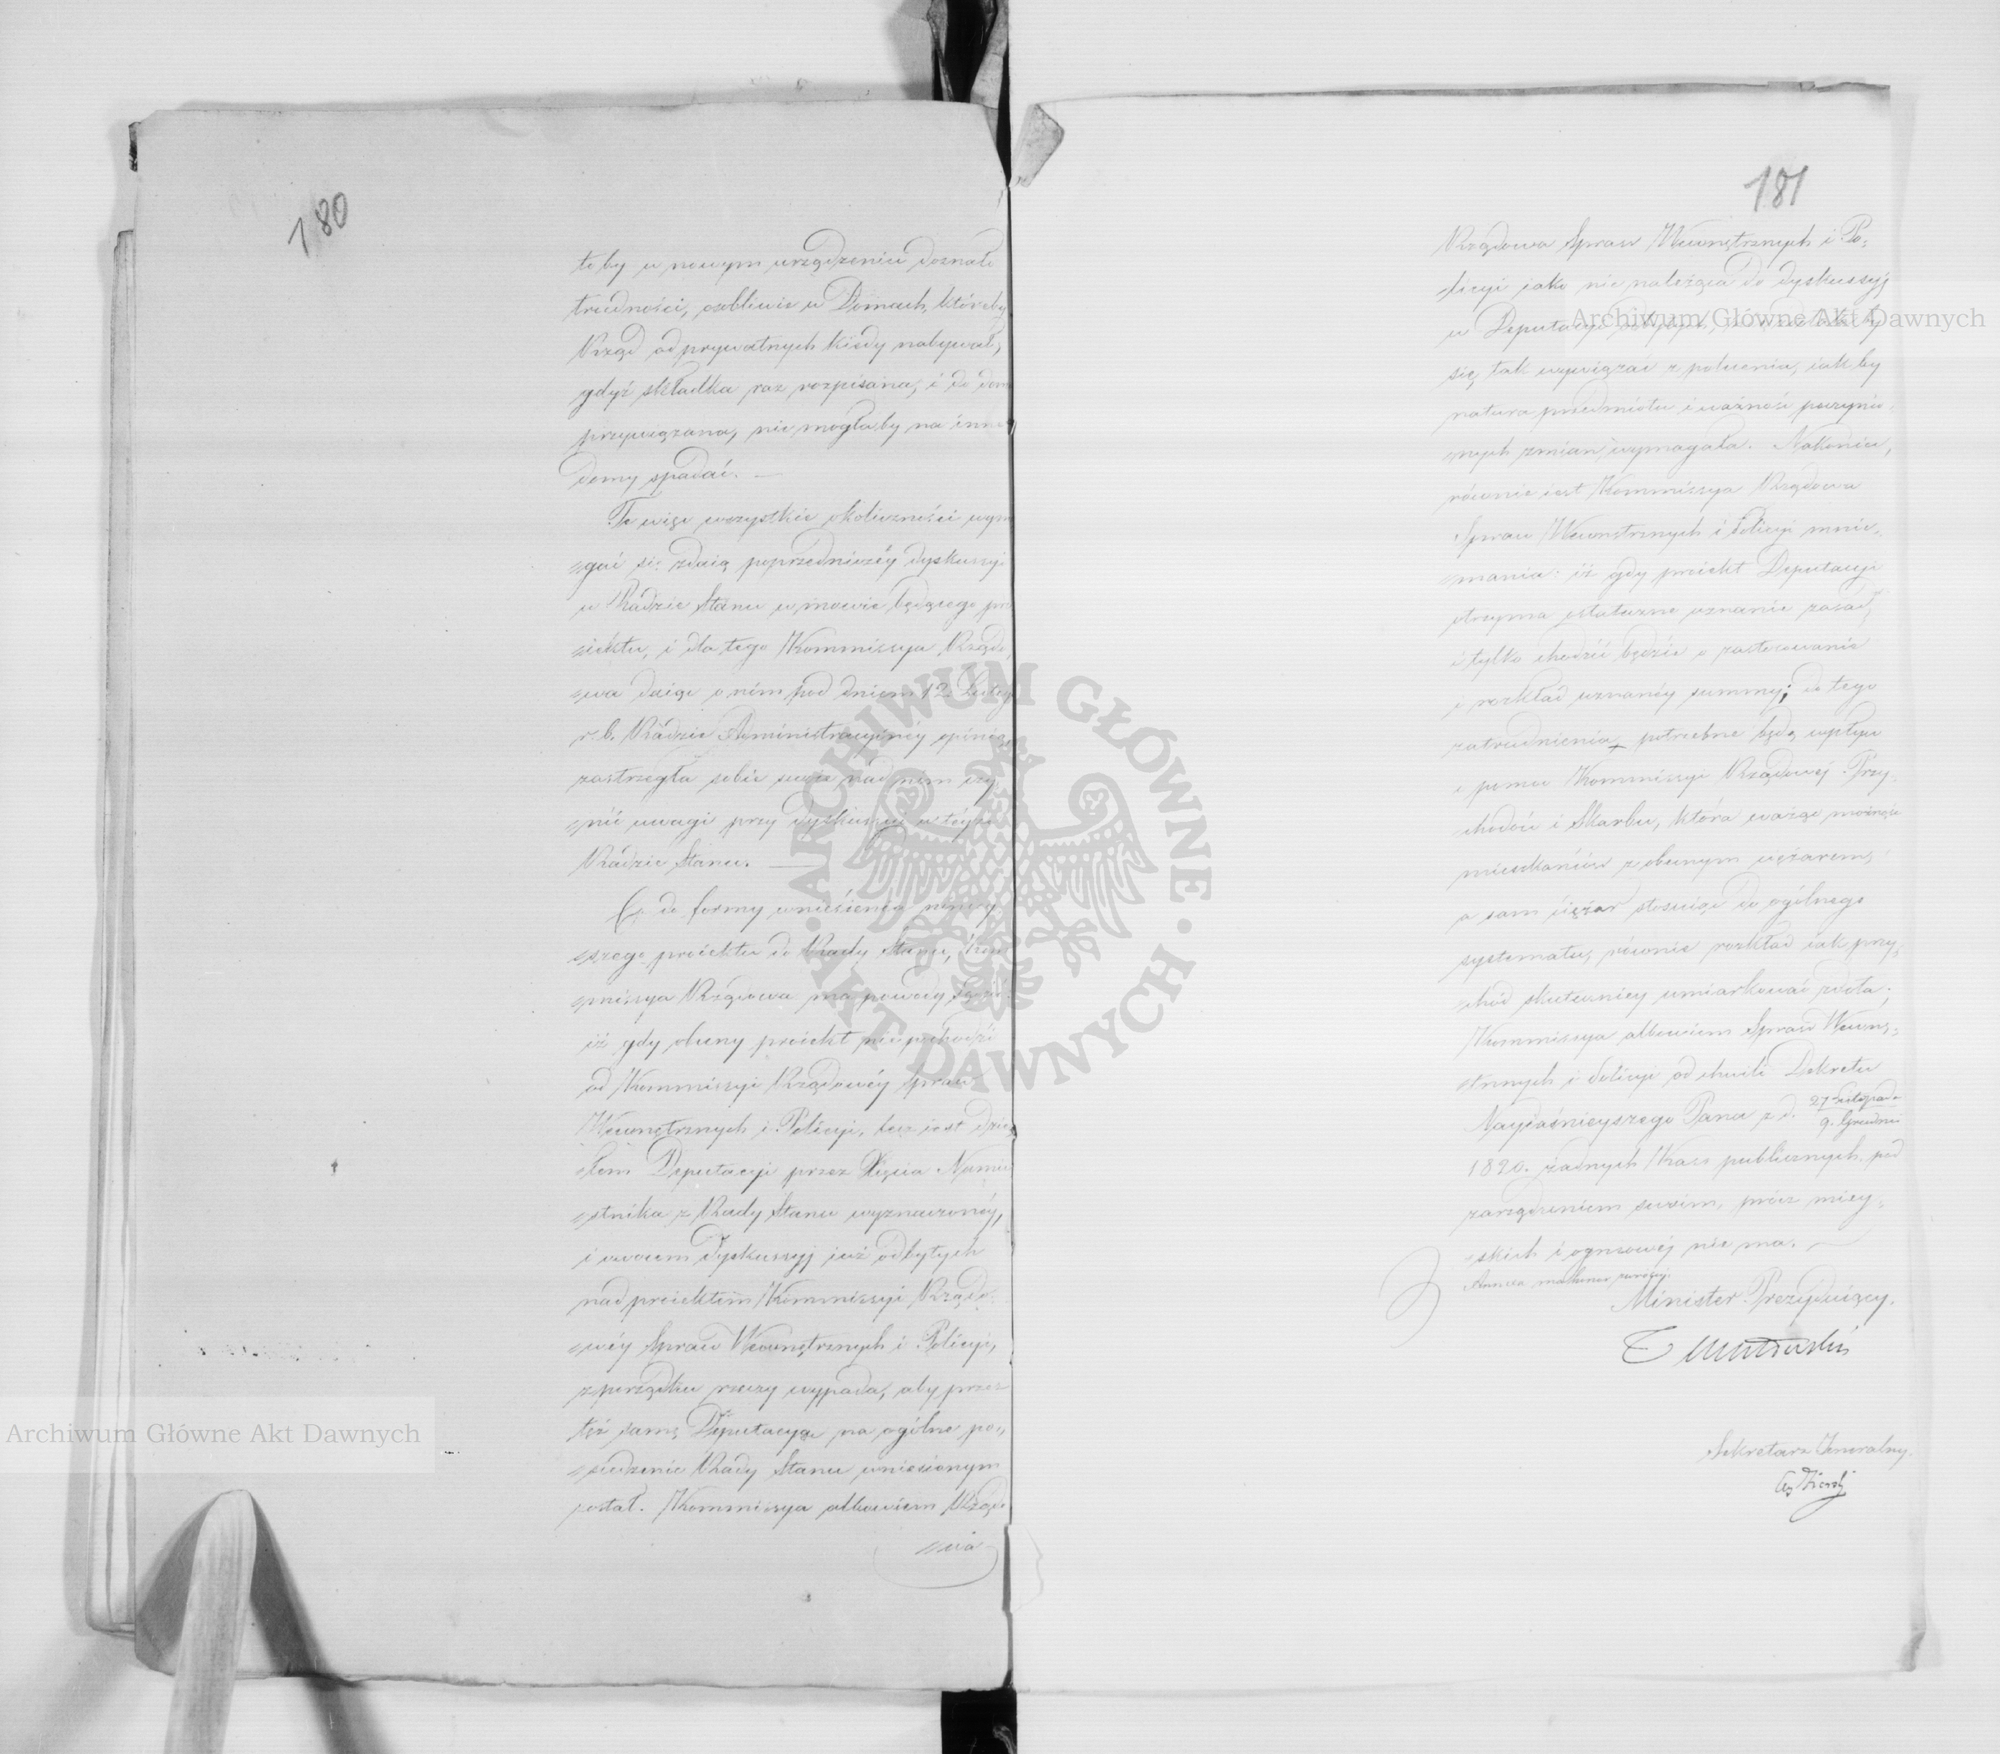 180
to by w nowym urządzeniu doznało
trudności, osobliwie w Domach, któreby
Rząd od prywatnych kiedy nabywał,
gdyż składka raz rozpisana, i do dom
przywiązana, nie mogłaby na inne
domy spadać. —
Te więc wszystkie okoliczności wym
gać się zdaią poprzedniczéy dyskussyi
w Radzie Stanu w mowie będącego pro
iektu, i dla tego Kommissya Rządo
wa daiąc o nim pod dniem 12 Luteg
r. b. Radzie Administracyinéy opinią,
zastrzegła sobie swoie nad nim czy
nić uwagi przy dyskussyi w téyże
Radzie Stanu. —
Co do formy wniesienia ninney
szego proiektu do Rady Stanu, Kom
missya Rządowa ma powody sądzić
iż gdy obecny proiekt nie pochodzi
od Kommissyi Rządowéy Spraw
Wewnętrznych i Policyi, lecz iest dzie
łem Deputacyi przez Xięcia Namie
stnika z Rady Stanu wyznaczonéy,
i owocem Dyskussyj iuż odbytych
nad proiektem Kommissyi Rządo
wéy Spraw Wewnętrznych i Policyi,
z porządku rzeczy wypada, aby przez
też samą Deputacyą na ogólne po
siedzenie Rady Stanu wniesionym
został. Kommissya albowiem Rządo
wa
181
Rządowa Spraw Wewnętrznych i Po
licyi iako nie należąca do dyskussyj
w Deputacyi
się tak wywiązać z polecenia, iak by
natura przedmiotu i ważność poczynio
nych zmian wymagała. Nakoniec,
równie iest Kommissya Rządowa
Spraw Wewnętrznych i Policyi mnie
mania: iż gdy proiekt Deputacyi
otrzyma ostateczne uznanie zasad,
i tylko chodzić będzie o zastosowanie
i rozkład uznanéy summy; do tego
zatrudnienia potrzebne będą wpływ
i pomoc Kommissyi Rządowéy Przy
chodów i Skarbu, która ważąc możność
mieszkańców z obecnym ciężarem,
a sam ciężar stosuiąc do ogólnego
systematu, równie rozkład iak przy
chód skuteczniey umiarkować zdoła;
Kommissya albowiem Spraw Wewnę
trznych i Policyi od chwili Dekretu
Nayiaśnieyszego Pana z d. 27 Listopada
9. Grudnia
1820. żadnych Kass publicznych pod
zarządzeniem swoim, prócz miey
skich i ogniowéy nie ma. —
Minister Prezyduiący.
T Mostowski
Sekretarz Jeneralny.
Archiwum Główne Akt Dawnych
Archiwum Główne Akt Dawnych
ARCHIWUM GŁÓWNE · AKT DAWNYCH ·